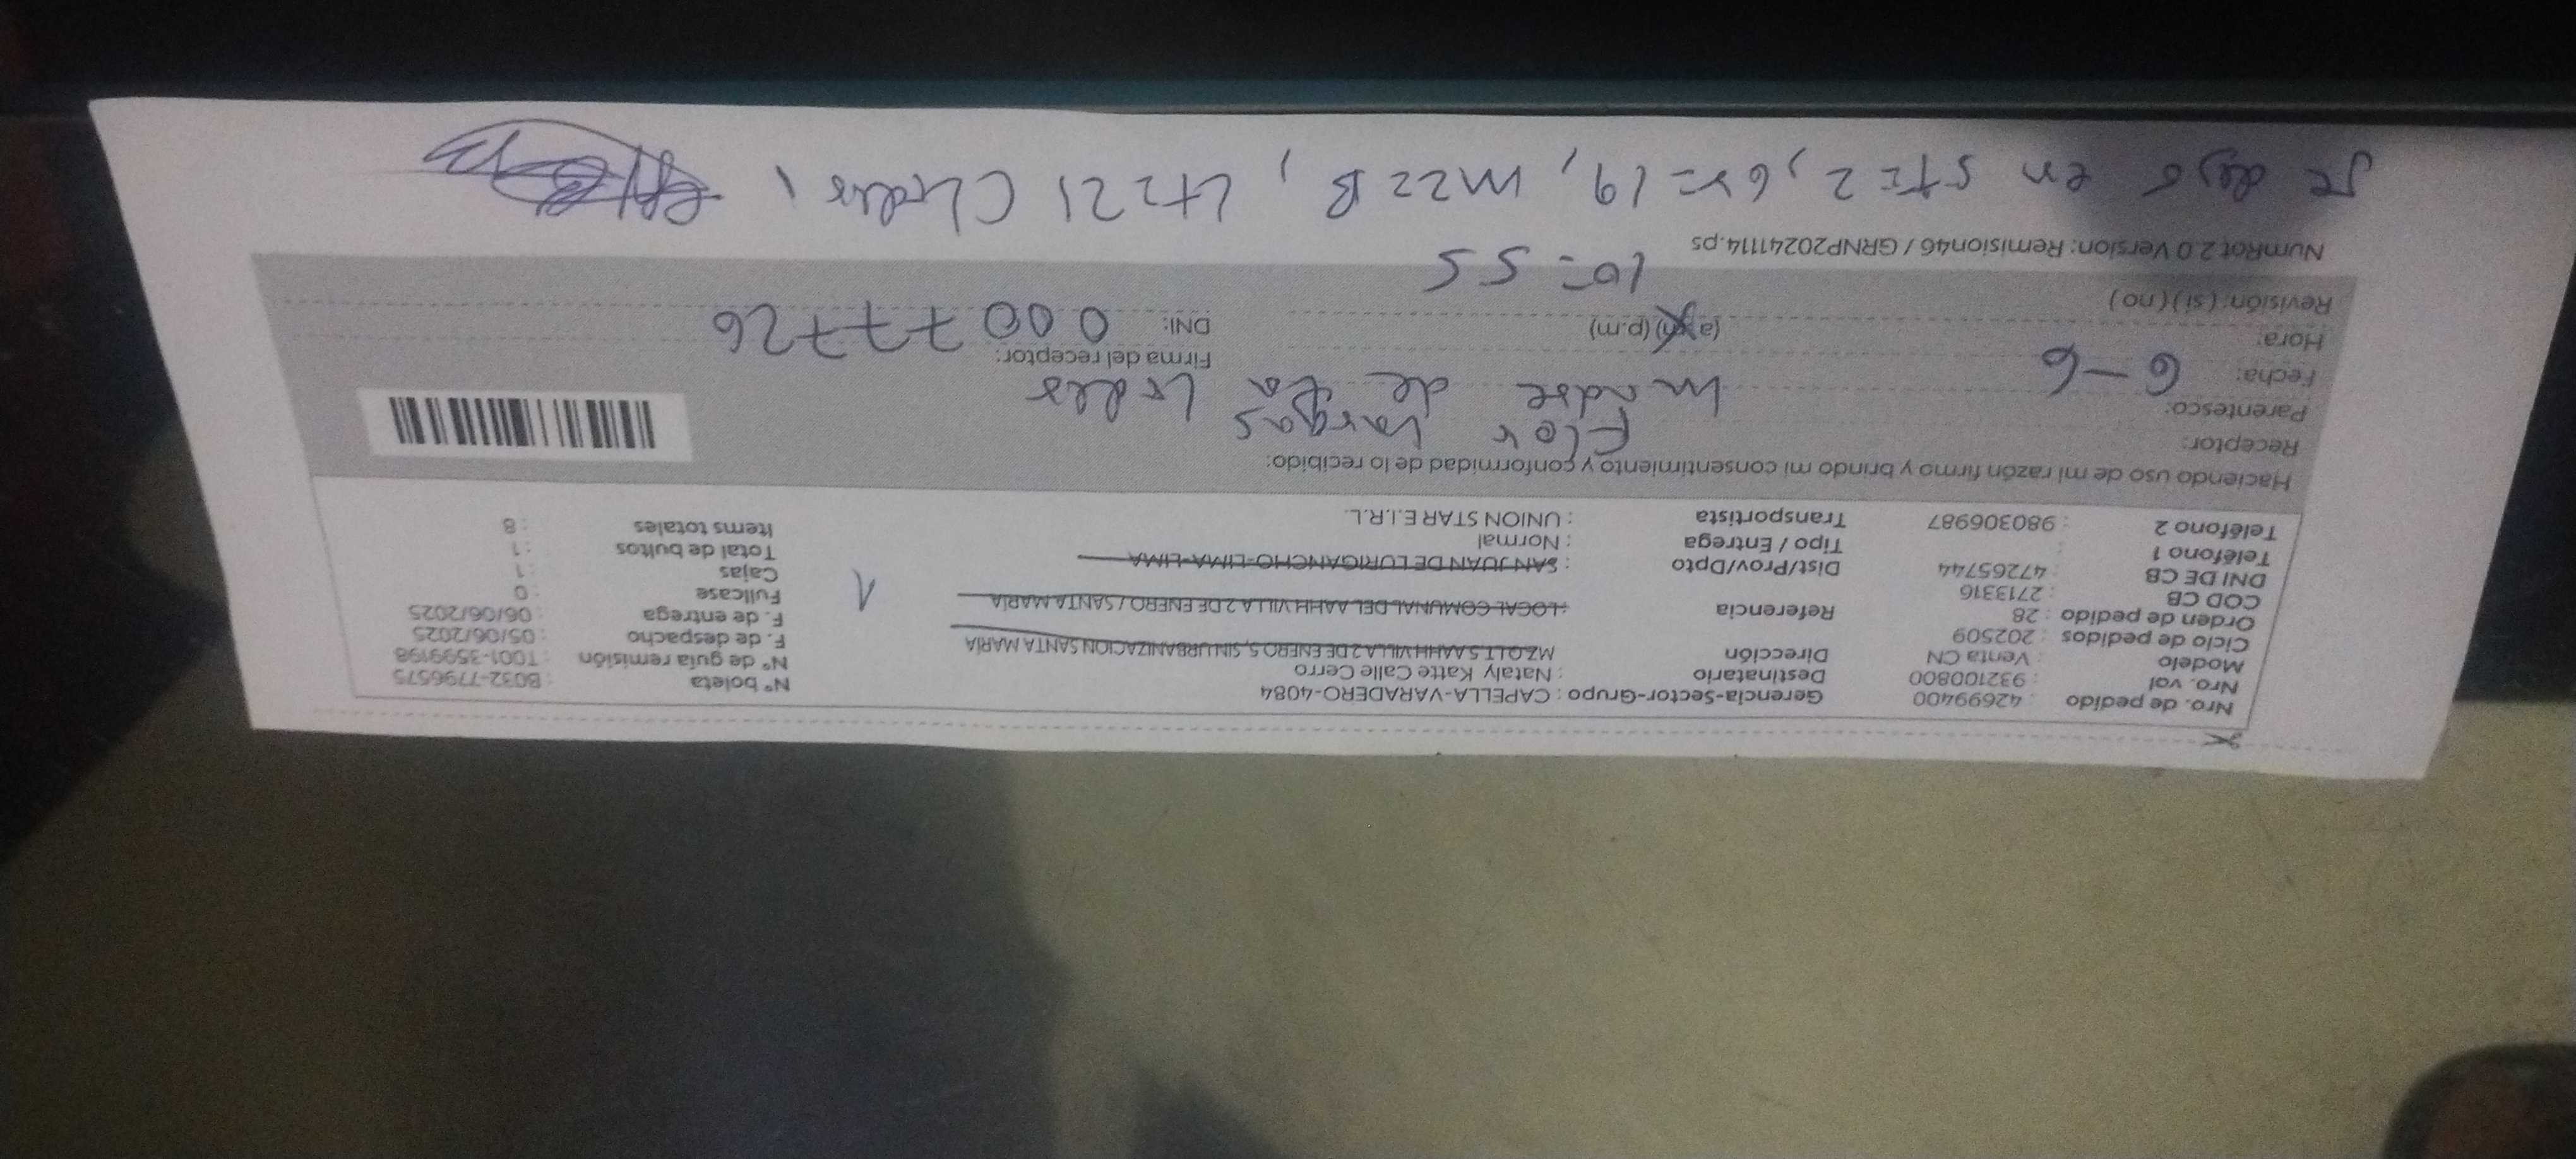 Nro. de pedido : 42699400 Gerencia-Sector-Grupo : CAPELLA-VARADERO-4084 Nº boleta : B032-7796575
Nro. vol : 932100800 Destinatario : Nataly Katte Calle Cerro Nº de guía remisión : T001-3599198
Modelo : Venta CN Dirección MZ.Q LT.5 AAHH VILLA 2 DE ENERO 5, SIN URBANIZACION SANTA MARÍA F. de despacho : 05/06/2025
Ciclo de pedidos : 202509 F. de entrega : 06/06/2025
Orden de pedido : 28 Referencia : LOCAL COMUNAL DEL AAHH VILLA 2 DE ENERO / SANTA MARÍA Fullcase : 0
COD CB : 2713316 Cajas : 1
DNI DE CB : 47265744 Dist/Prov/Dpto : SAN JUAN DE LURIGANCHO-LIMA-LIMA 1 Total de bultos : 1
Teléfono 1 : Tipo / Entrega : Normal Ítems totales : 8
Teléfono 2 : 980306987 Transportista : UNION STAR E.I.R.L.
Haciendo uso de mi razón firmo y brindo mi consentimiento y conformidad de lo recibido:
Receptor: Flor Vargas
Parentesco: madre de la
Fecha: 6-6 Firma del receptor:
Hora: (a.m) (p.m) DNI: 00077726
Revisión: (si) (no) 10=55
NumRot 2.0 Version: Remision46 / GRNP20241114.ps
Se dejó en st=2, Gr=19, mz=B, Lt=21